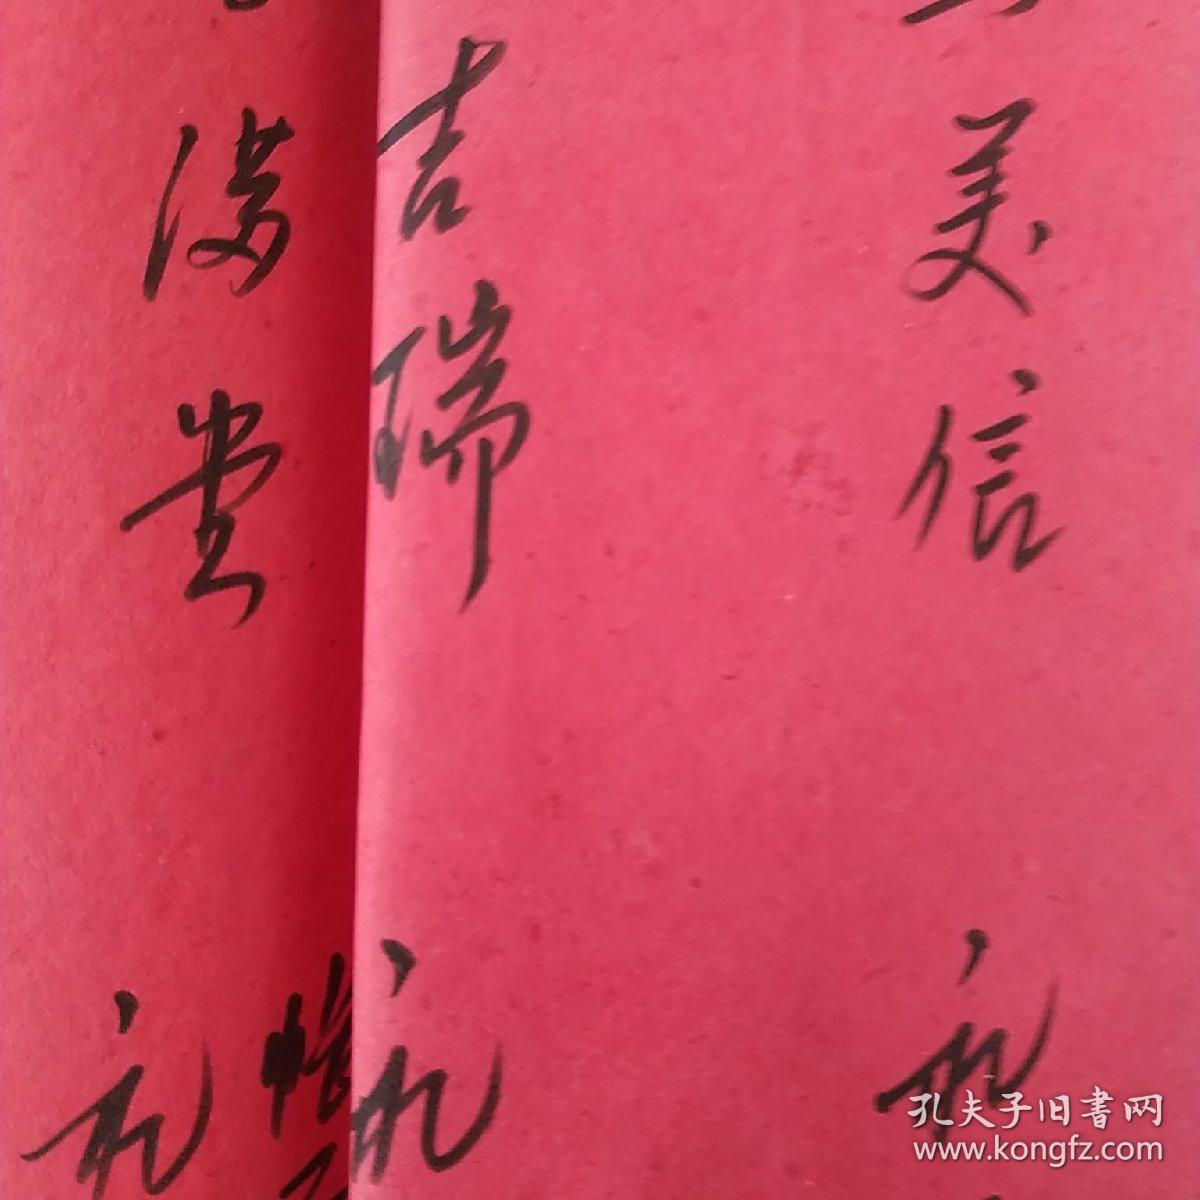 美信
礼
吉瑞
礼
满贵
礼
孔夫子旧书网
www.kongfz.com